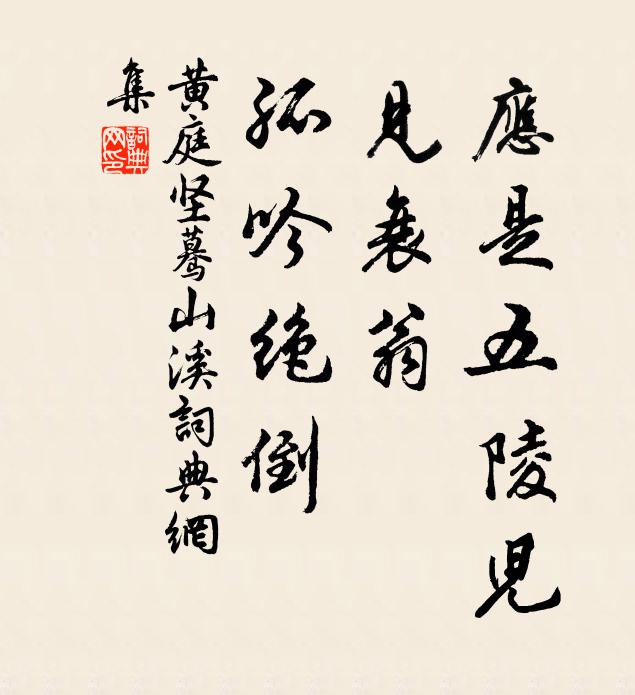 應是五陵児
見衰翁
孤吟绝倒
黄庭坚驀山溪詞典網
集
詞典
网印